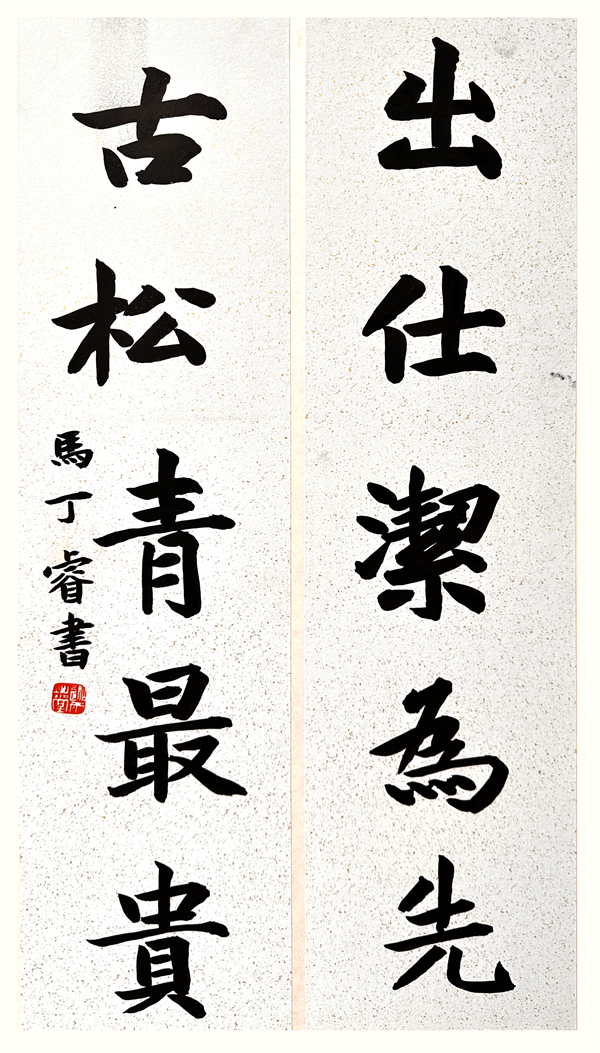 出仕潔為先
古松青最貴
馬丁睿書